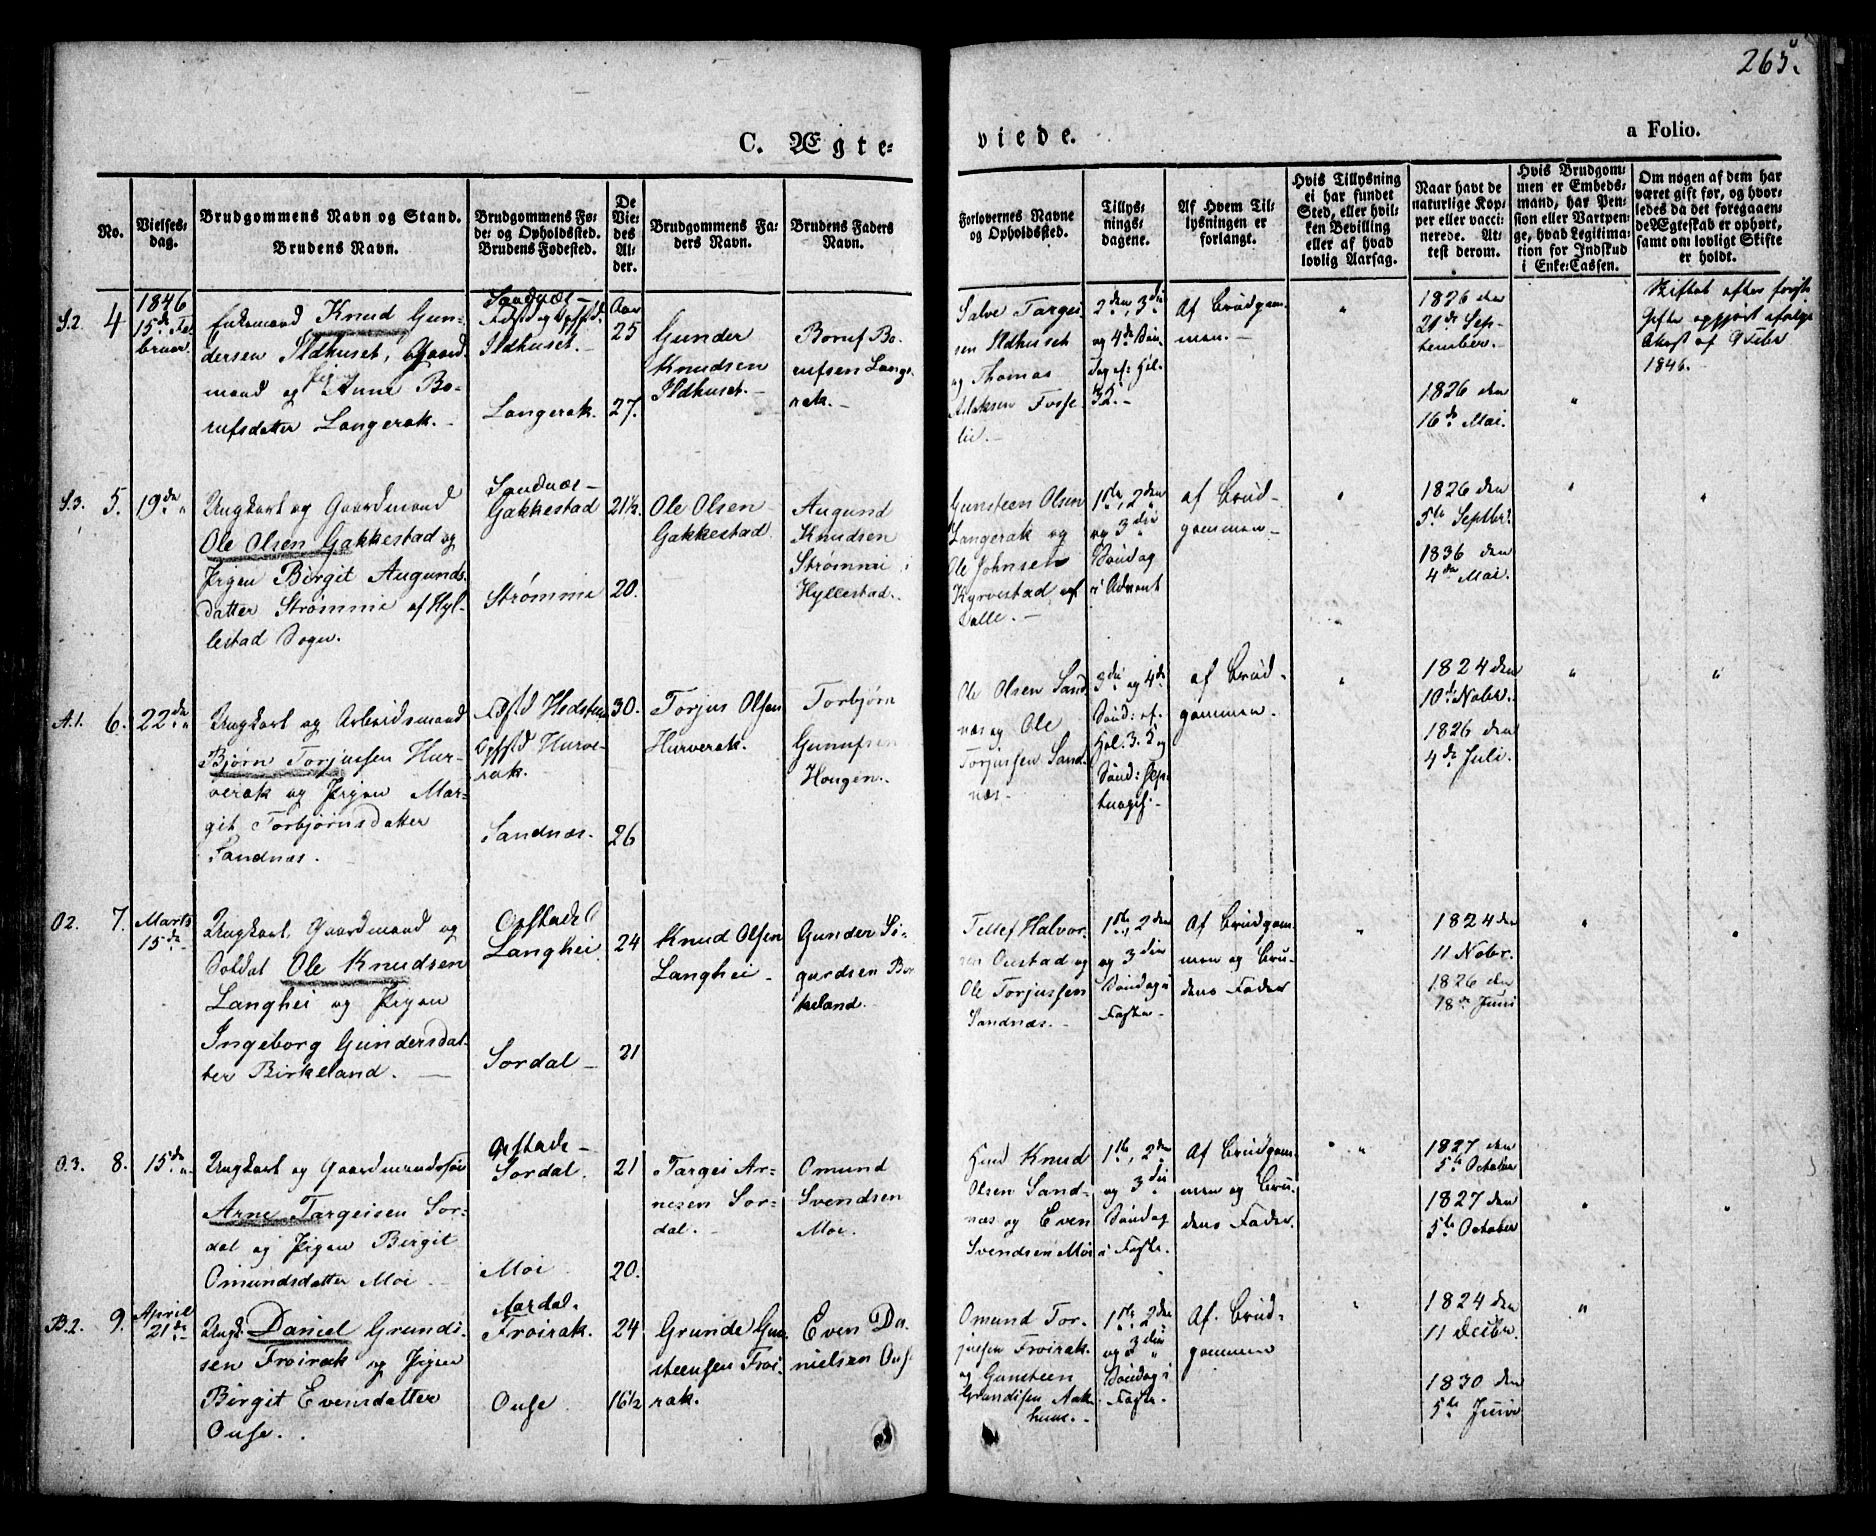 265.
C. Ægte-
viede.
a Folio.
No.
Vielses-
dag.
Brudgommens Navn og Stand.
Brudens Navn.
Brudgommens Fø-
de- og Opholdssted.
Brudens Fødested.
De
Vie-
des
Al-
der.
Brudgommens Fa-
ders Navn.
Brudens Faders
Navn.
Forlovernes Navne
og Opholdssted.
Tillys-
nings-
dagene.
Af Hvem Til-
lysningen er
forlangt.
Hvis Tillysning
ei har fundet
Sted, eller hvil-
ken Bevilling
eller af hvad
lovlig Aarsag.
Naar havt de
naturlige Kop-
per eller vacci-
nerede. At-
test derom.
Hvis Brudgom-
men er Embeds-
mand, har Pen-
sion eller Vartpen-
ge, hvad Legitima-
tion for Indskud
i Enke-Cassen.
Om nogen af dem har
været gift før, og hvor-
ledes da det foregaaen-
de Ægteskab er ophørt,
samt om lovligt Skifte
er holdt.
S.2. 4
1846
15de Fe-
bruar
Enkemand Knud Gun-
dersen Ildhuset, Gaard-
mand og Pigen Anne Bo-
rufsdatter Langerak.
Sandnæs-
Ildhuset.
Langerak.
Aar
25
27.
Gunder
Knudsen
Ildhuset.
Boruf Bo-
rufsen Lange-
rak.
Salve Targei-
sen Ildhuset
og Thomas
Aslaksen Fosse-
lie.
2den, 3die
og 4de Søn-
dag ef: Hel.
3K.
Af Brudgom-
men.
1826 den
21de Sep-
tember.
1826 den
16de Mai.
Skiftet efter første
Gifte opgjort ifølge
Attest af 9 Febr
1846.
S.3. 5.
19de "
Ungkarl og Gaardmand
Ole Olsen Gakkestad og
Pigen Birgit Augunds-
datter Strømme af Hyl-
lestad Sogn.
Sandnæs-
Gakkestad
Strømme
21½.
20.
Ole Olsen
Gakkestad.
Augund
Knudsen
Strømme
Hyllestad.
Gunsteen Olsen
Langerak og
Ole Johnsen
Kyrvestad af
Valle.
1ste, 2den
og 3die
Søndag
i Advent
af Brud-
gommen
1826 den
5te Septbr.
1836 den
4de Mai.
A.1. 6.
22de "
Ungkarl og Arbeidsmand
Bjørn Torjussen Hur-
verak og Pigen Mar-
git Torbjørnsdatter
Sandnæs.
Hurve-
rak.
Sandnæs.
30.
26
Torjus Olsen
Hurverak.
Torbjørn
Gunufsen
Hougen.
Ole Olsen Sand-
næs og Ole
Torjussen Sand-
næs.
3die og 4de
Sønd: ef.
Hel. 3. K og
Sønd: Sep-
tuages.
af Brud-
gommen.
1824 den
10de Novbr.
1826 den
4de Juli.
O2. 7.
Marts
15de
Ungkarl, Gaardmand og
Soldat Ole Knudsen
Langhei og Pigen
Ingeborg Gundersdat-
ter Birkeland.
Langhei.
Sordal
24
21
Knud Olsen
Langhei
Gunder Si-
gurdsen Bir-
keland.
Tellef Halvor-
sen Oustad og
Ole Torjussen
Sandnæs.
1ste, 2den
og 3die
Søndag i
Faste
Af Brudgom-
men og Bru-
dens Fader
1824 den
11 Novbr.
1826 den
18de Juni
O.3. 8.
15de "
Ungkarl og Gaardmandssøn
Arne Targeisen Sor-
dal og Pigen Birgit
Omundsdatter Moi
Sordal.
Moi
21
20.
Targei Ar-
nesen Sor-
dal.
Omund
Svendsen
Moi.
Knud
Olsen Sand-
næs og Even
Svendsen Moi
1ste, 2den
og 3die
Søndag
i Faste.
Af Brudgom-
men og Bru-
dens Fader.
1827 den
5te October
1827 den
5te October
B.2. 9.
April
21de
Ungk. Daniel Grundi-
sen Frøirak og Pigen
Birgit Evensdatter
Ouse.
Aardal.
Frøirak.
Ouse.
24
16½
Grunde Gun-
steensen Frøi-
rak.
Even Da-
nielsen Ouse
Omund Tor-
jussen Frøirak.
og Gunsteen
Grundisen Aak-
huue.
1ste, 2den
og 3die
Søndag i
Faste.
Af Brud-
gommen
1824 den
11 Decbr.
1830 den
5te Juni